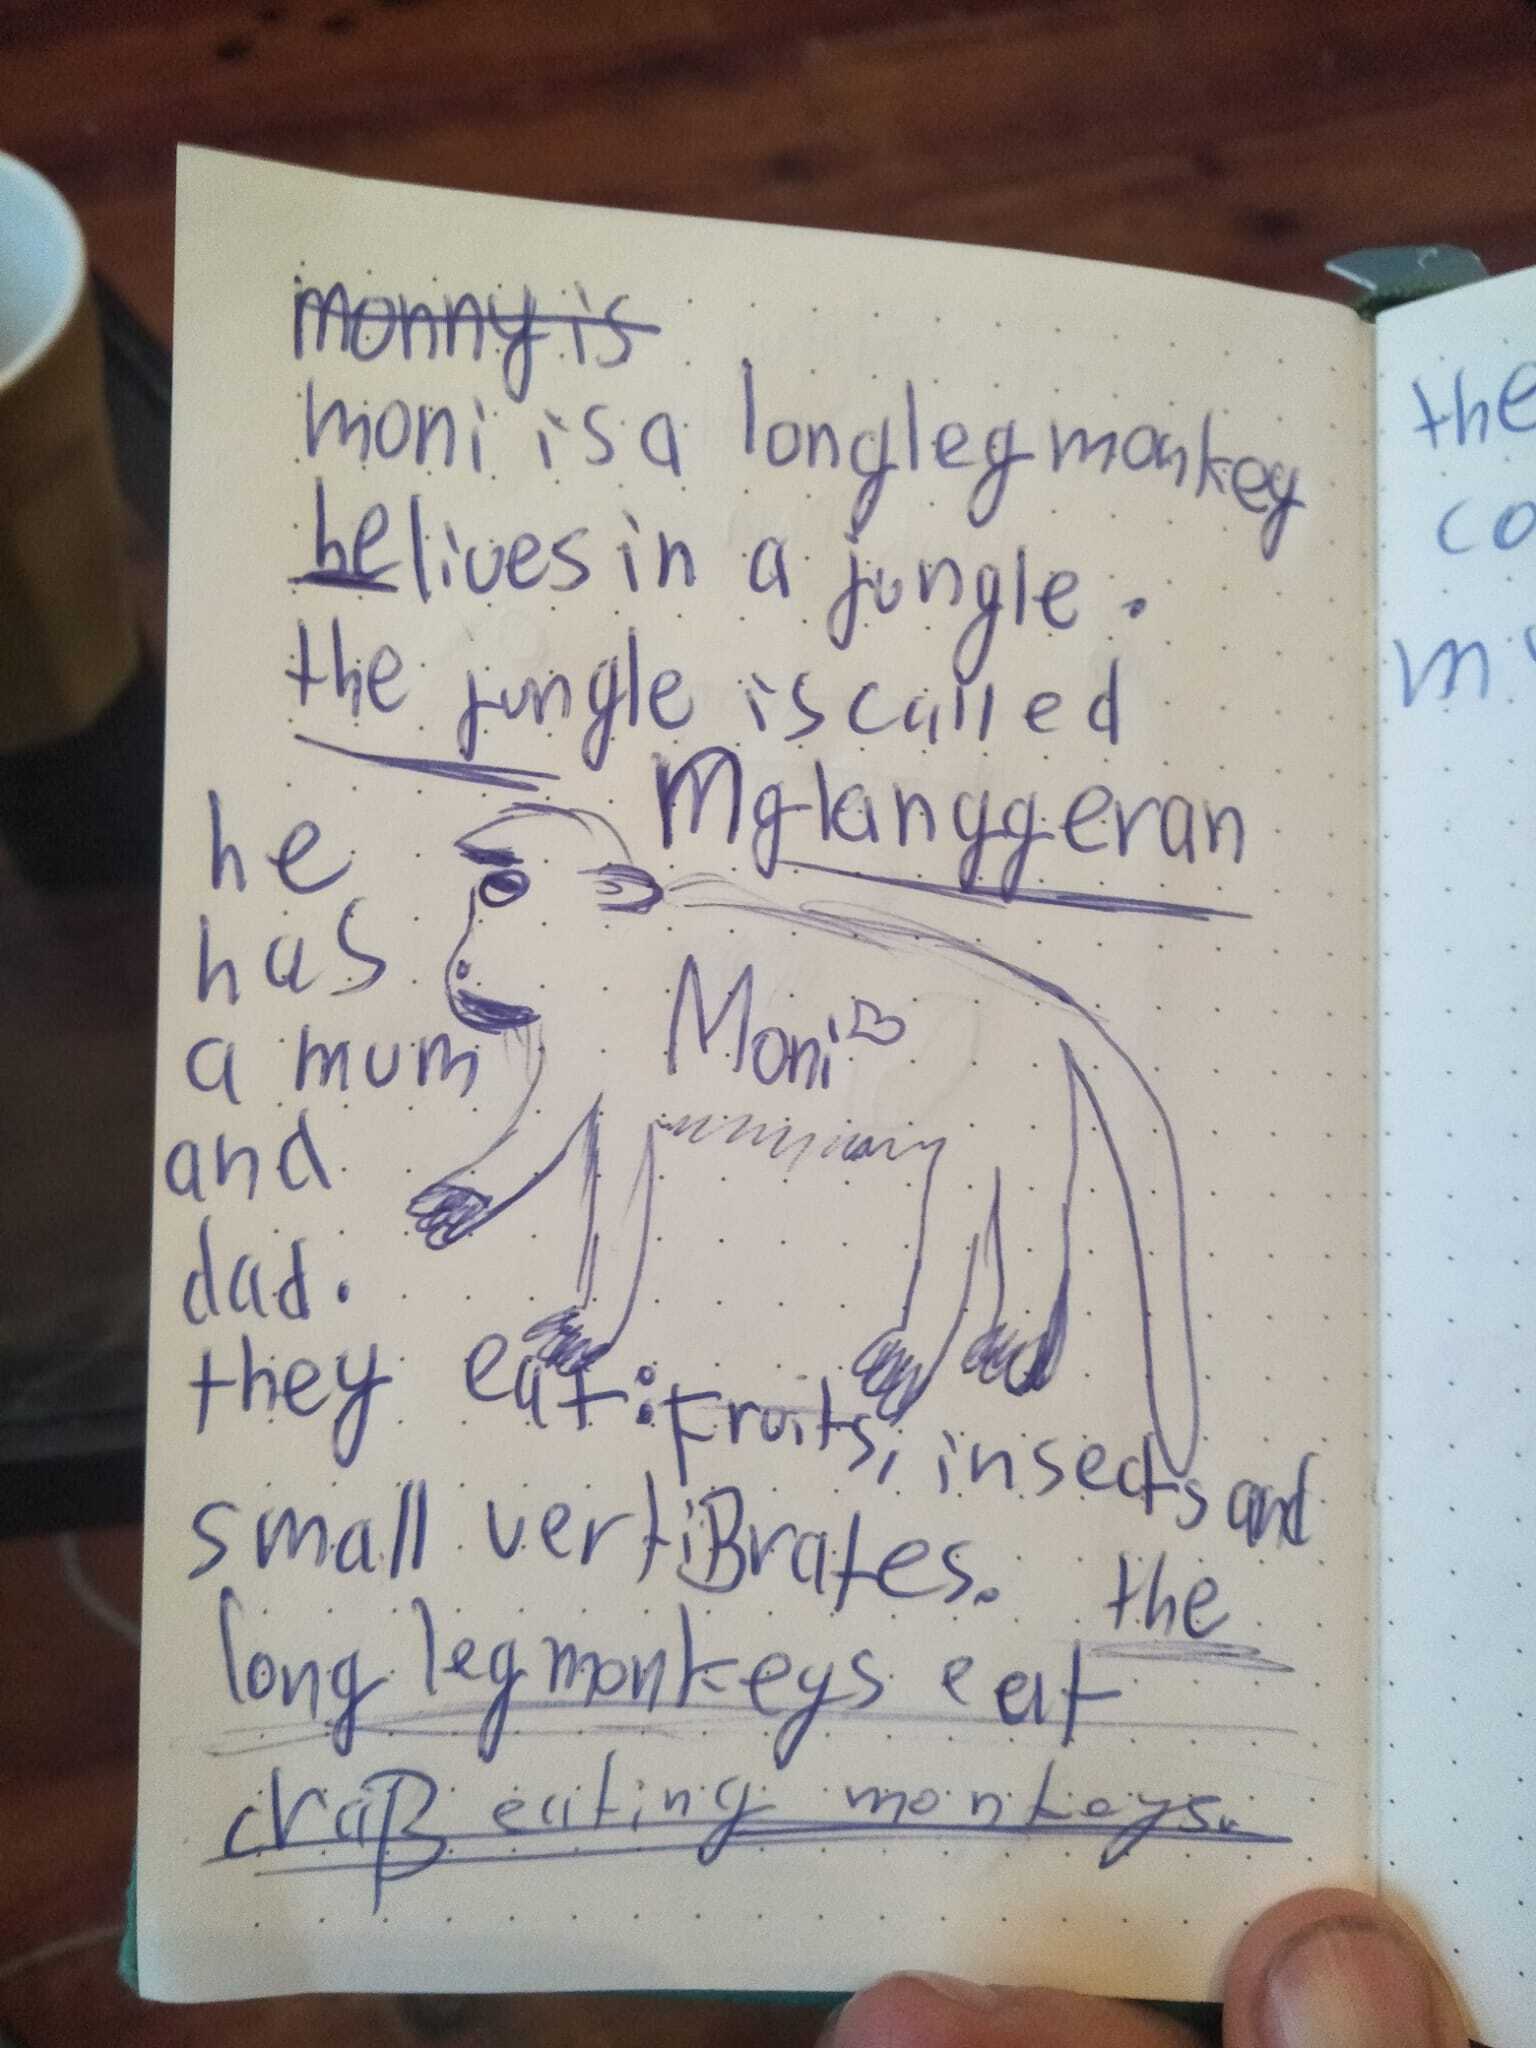 ~~monny is~~
moni is a long leg monkey
he lives in a jungle.
the jungle is called
Mglanggeran
he
has
a mum
and
dad.
Moni
they eat: fruits, insects and
small vertiBrates. the
long leg monkeys eat
craB eating monkeys.
the
co